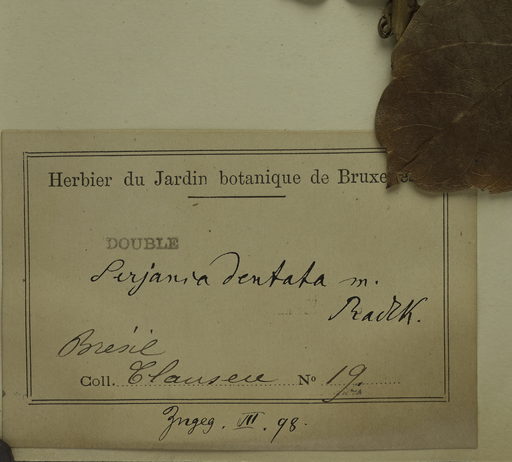 Herbier du Jardin botanique de Bruxelles
DOUBLE
Serjania dentata m.
Radlk.
Brésil
Coll. Clausen Nº 19.
VII. 98.